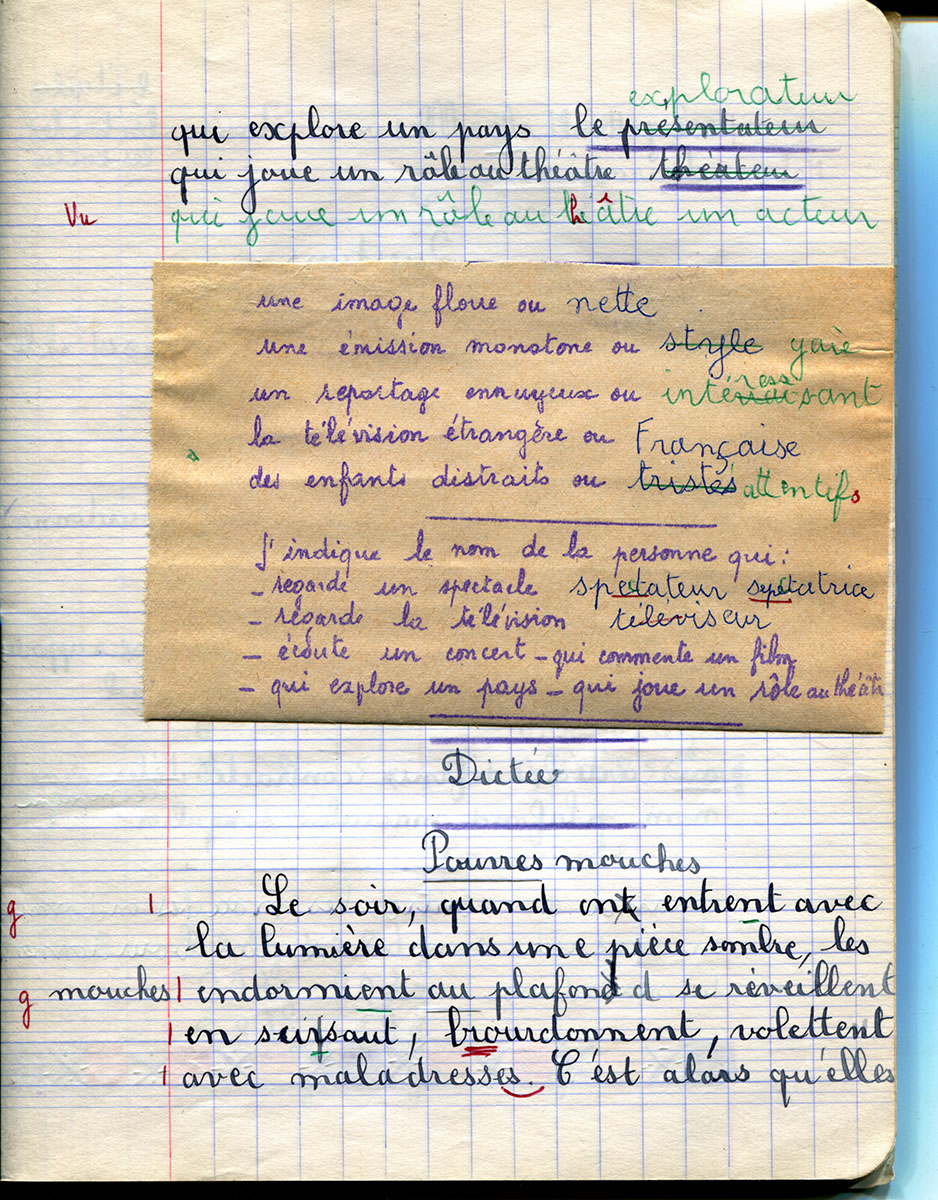 explorateur
qui explore un pays le présentateur
qui joue un rôle au théâtre théateur
Vu qui joue un rôle au théâtre un acteur
une image floue ou nette
une émission monotone ou style gaie
un reportage ennuyeux ou intéressant
la télévision étrangère ou Française
des enfants distraits ou tristes attentifs
J'indique le nom de la personne qui :
- regarde un spectacle spectateur spectatrice
- regarde la télévision téléviseur
- écoute un concert - qui commente un film
- qui explore un pays - qui joue un rôle au théâtr
Dictée
Pouvres mouches
g | Le soir, quand ont entrent avec
la lumière dans une pièce sombre, les
g mouches | endormient au plafond d se réveillent
| en sursaut, brourdonnent, volettent
| avec maladresses. C'ést alors qu'elles